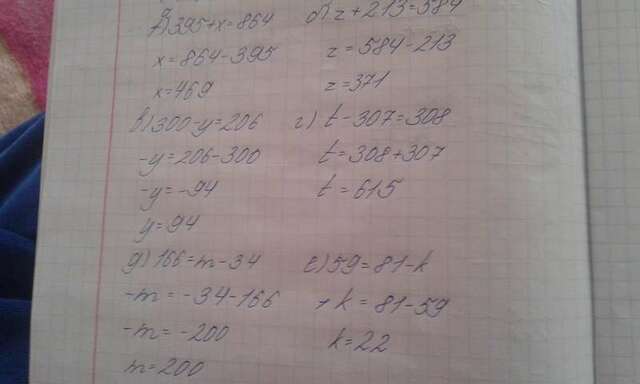 а) 395+x=864 б) z+213=584
x=864-395 z=584-213
x=469 z=371
в) 300-y=206 г) t-307=308
-y=206-300 t=308+307
-y=-94 t=615
y=94
д) 166=m-34 е) 59=81-k
-m=-34-166 k=81-59
-m=-200 k=22
m=200